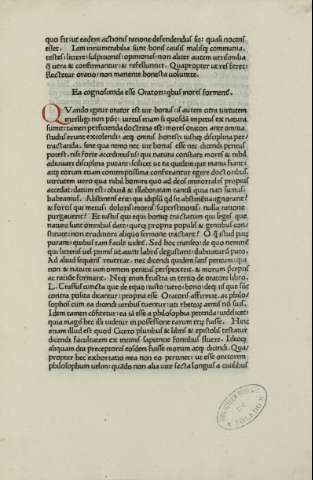 quo fit ut eadem actionis ratione defendendus sit: quasi nocens
esset. Iam innumerabilia sunt bonis causis malisque communia.
testes: litterę: suspiciones: opiniones: non aliter autem uerisimilia
q̃ uera & confirmantur: & refelluntur. Quapropter ut res feret:
flectetur oratio: manente honesta uoluntate.
Ea cognoscenda esse Oratori quibus mores formentur.
Quando igitur orator est uir bonus: is autem citra uirtutem
intelligi non potest: uirtus etiam si quosdã impetus ex natura
sumit: tamen perficienda doctrina est: mores oratori ante omnia
studiis erunt excolendi: atque omnis honesti iustique disciplina per
tractanda. sine qua nemo nec uir bonus esse nec dicendi peritus
potest. nisi forte accedimus iis: qui natura constare mores & nihil
adiuuari disciplina putant: scilicet ut ea quidem quę manu fiunt:
atque eorum etiam contemptissima confiteantur egere doctoribus:
uirtutem uero qua nihil homini quo ad deos immortales propius
accederet datum est: obuiã & illaboratam tantũ quia nati simus
habeamus. Abstinens erit: qui id ipsũ qd sit abstinentia ignoranit
& fortis: qui metus: doloris: mortis: superstitionis: nulla ratione
purgauerit? Et iustus: qui equi bonique tractatum qui leges: quę
natura sunt omnibus datę: quęque propriæ populis & gentibus con/
stitutę: nunquam eruditiore aliquo sermone tractarit? O q̃ istud par
putant: quibus tam facile uidet. Sed hoc transeo: de quo neminẽ
qui litteras uel primis ut aiunt labris degustarit: dubitaturũ puto.
Ad illud sequens reuertar. nec dicendi quidem satis peritum: qui
non & naturę uim omnem penitus perspexerit. & morum præceptis
ac ratione formarit. Neque enim frustra in tertio de oratore libro
L. Crassus cuncta quę de equo iusto uero: bono: deque iis quę sunt
contra posita dicantur: propria esse Oratoris affirmat. ac philo/
sophos cum ea dicendi uiribus tuentur: uti rhetorũ armis nõ suis.
Idem tamen cõfitetur: ea iã esse a philosophia petenda: uidelicet:
quia magis hęc illi uidetur in possessione earum rerũ fuisse. Hinc
etiam illud est: quod Cicero pluribus & libris & epistolis testatur
dicendi facultatem ex intimis sapientię fontibus fluere. Ideoque
aliquandiu preceptores eosdem fuisse morum atque dicendi. Qua/
propter hęc exhortatio mea non eo pertinet: ut esse oratorem
philosophum uelim: quãdo non alia uitę secta longius a ciuilibus